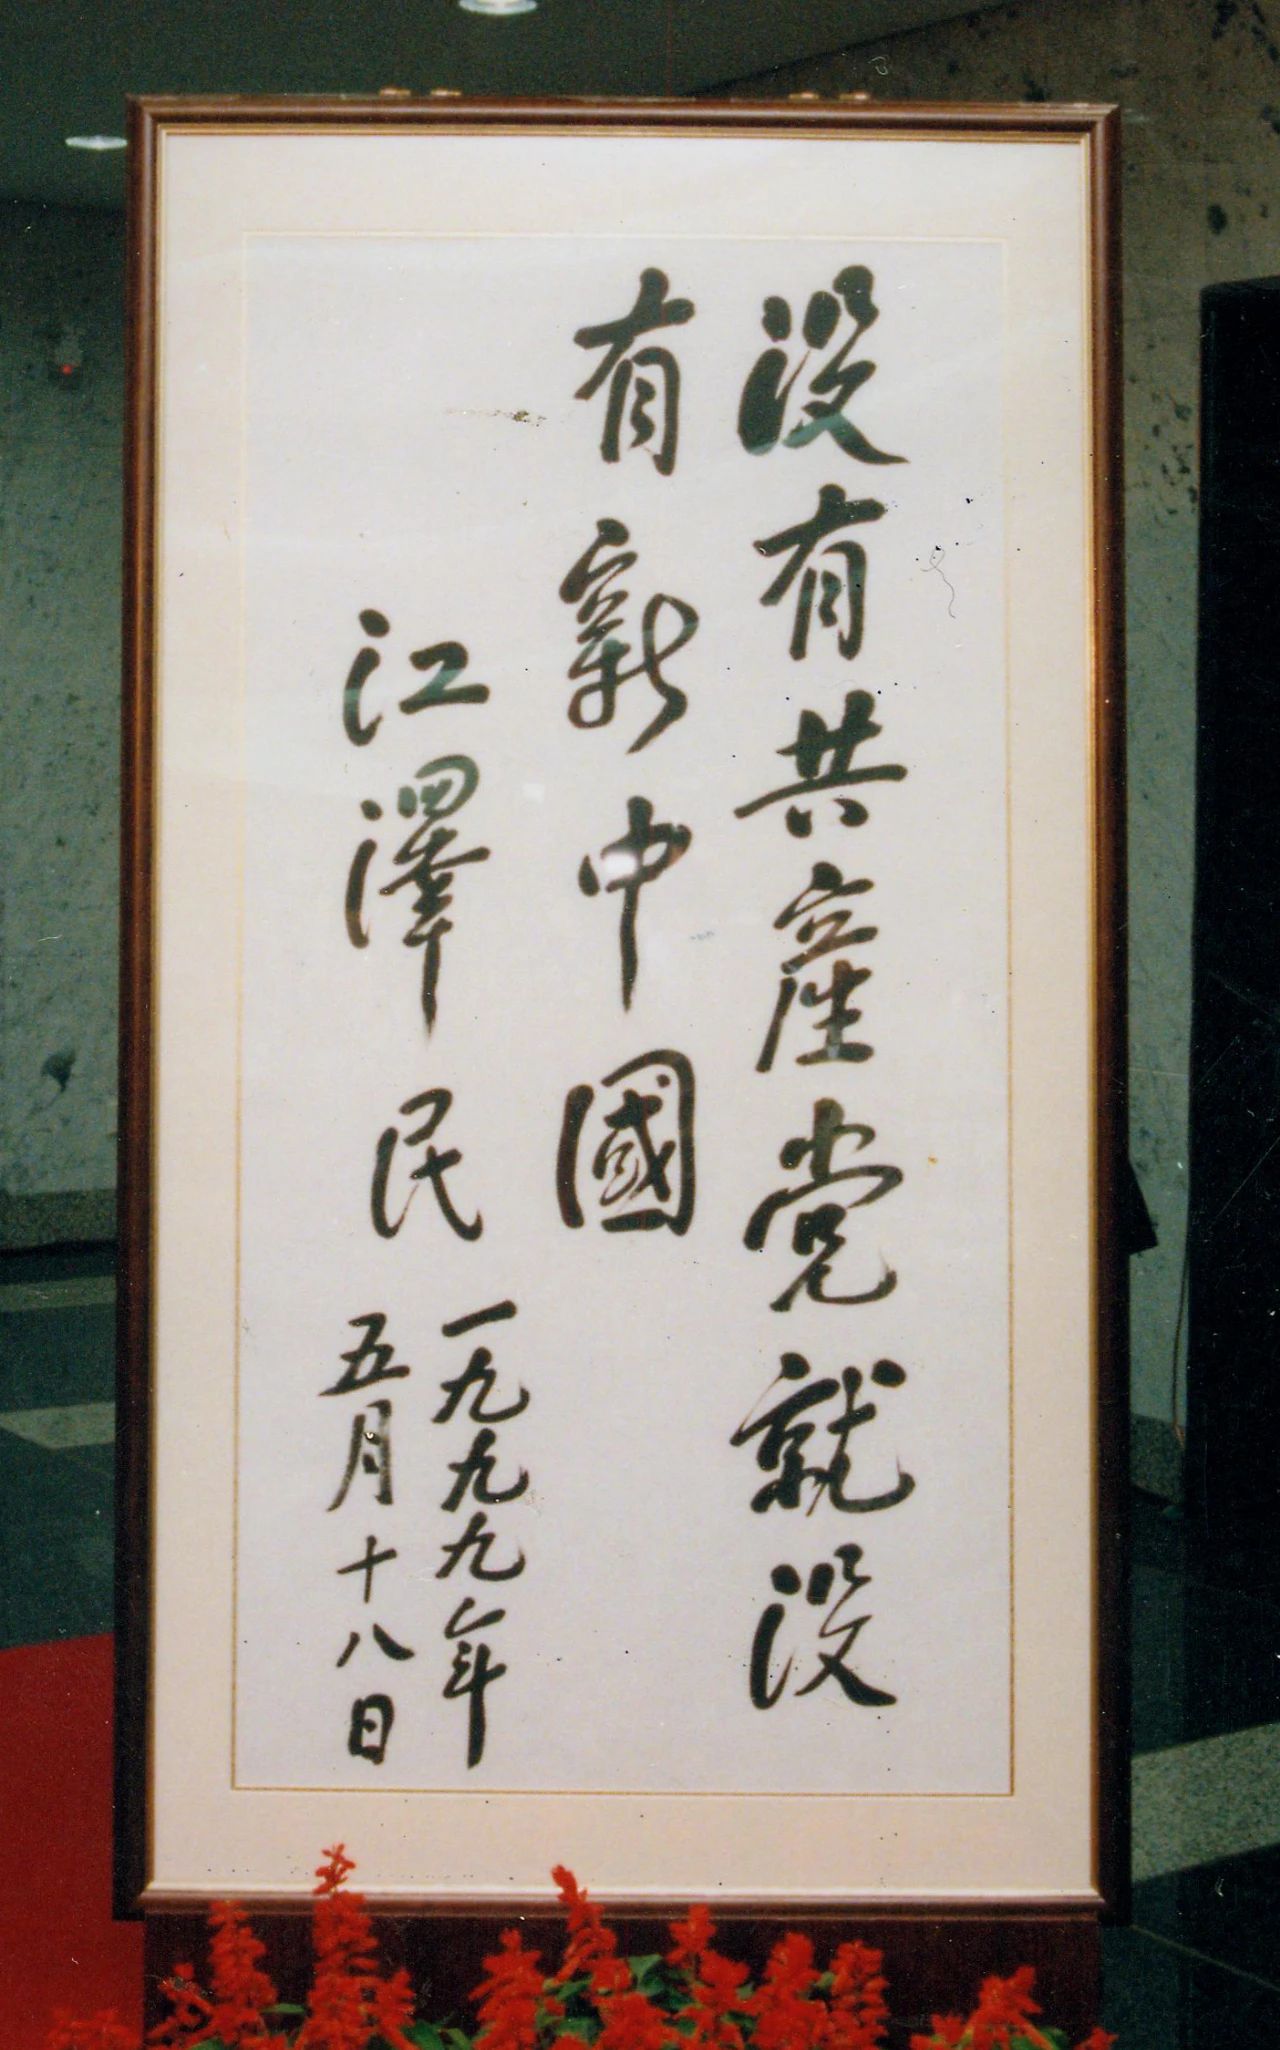 没有共産党就没
有新中國
江澤民
一九九九年
五月十八日